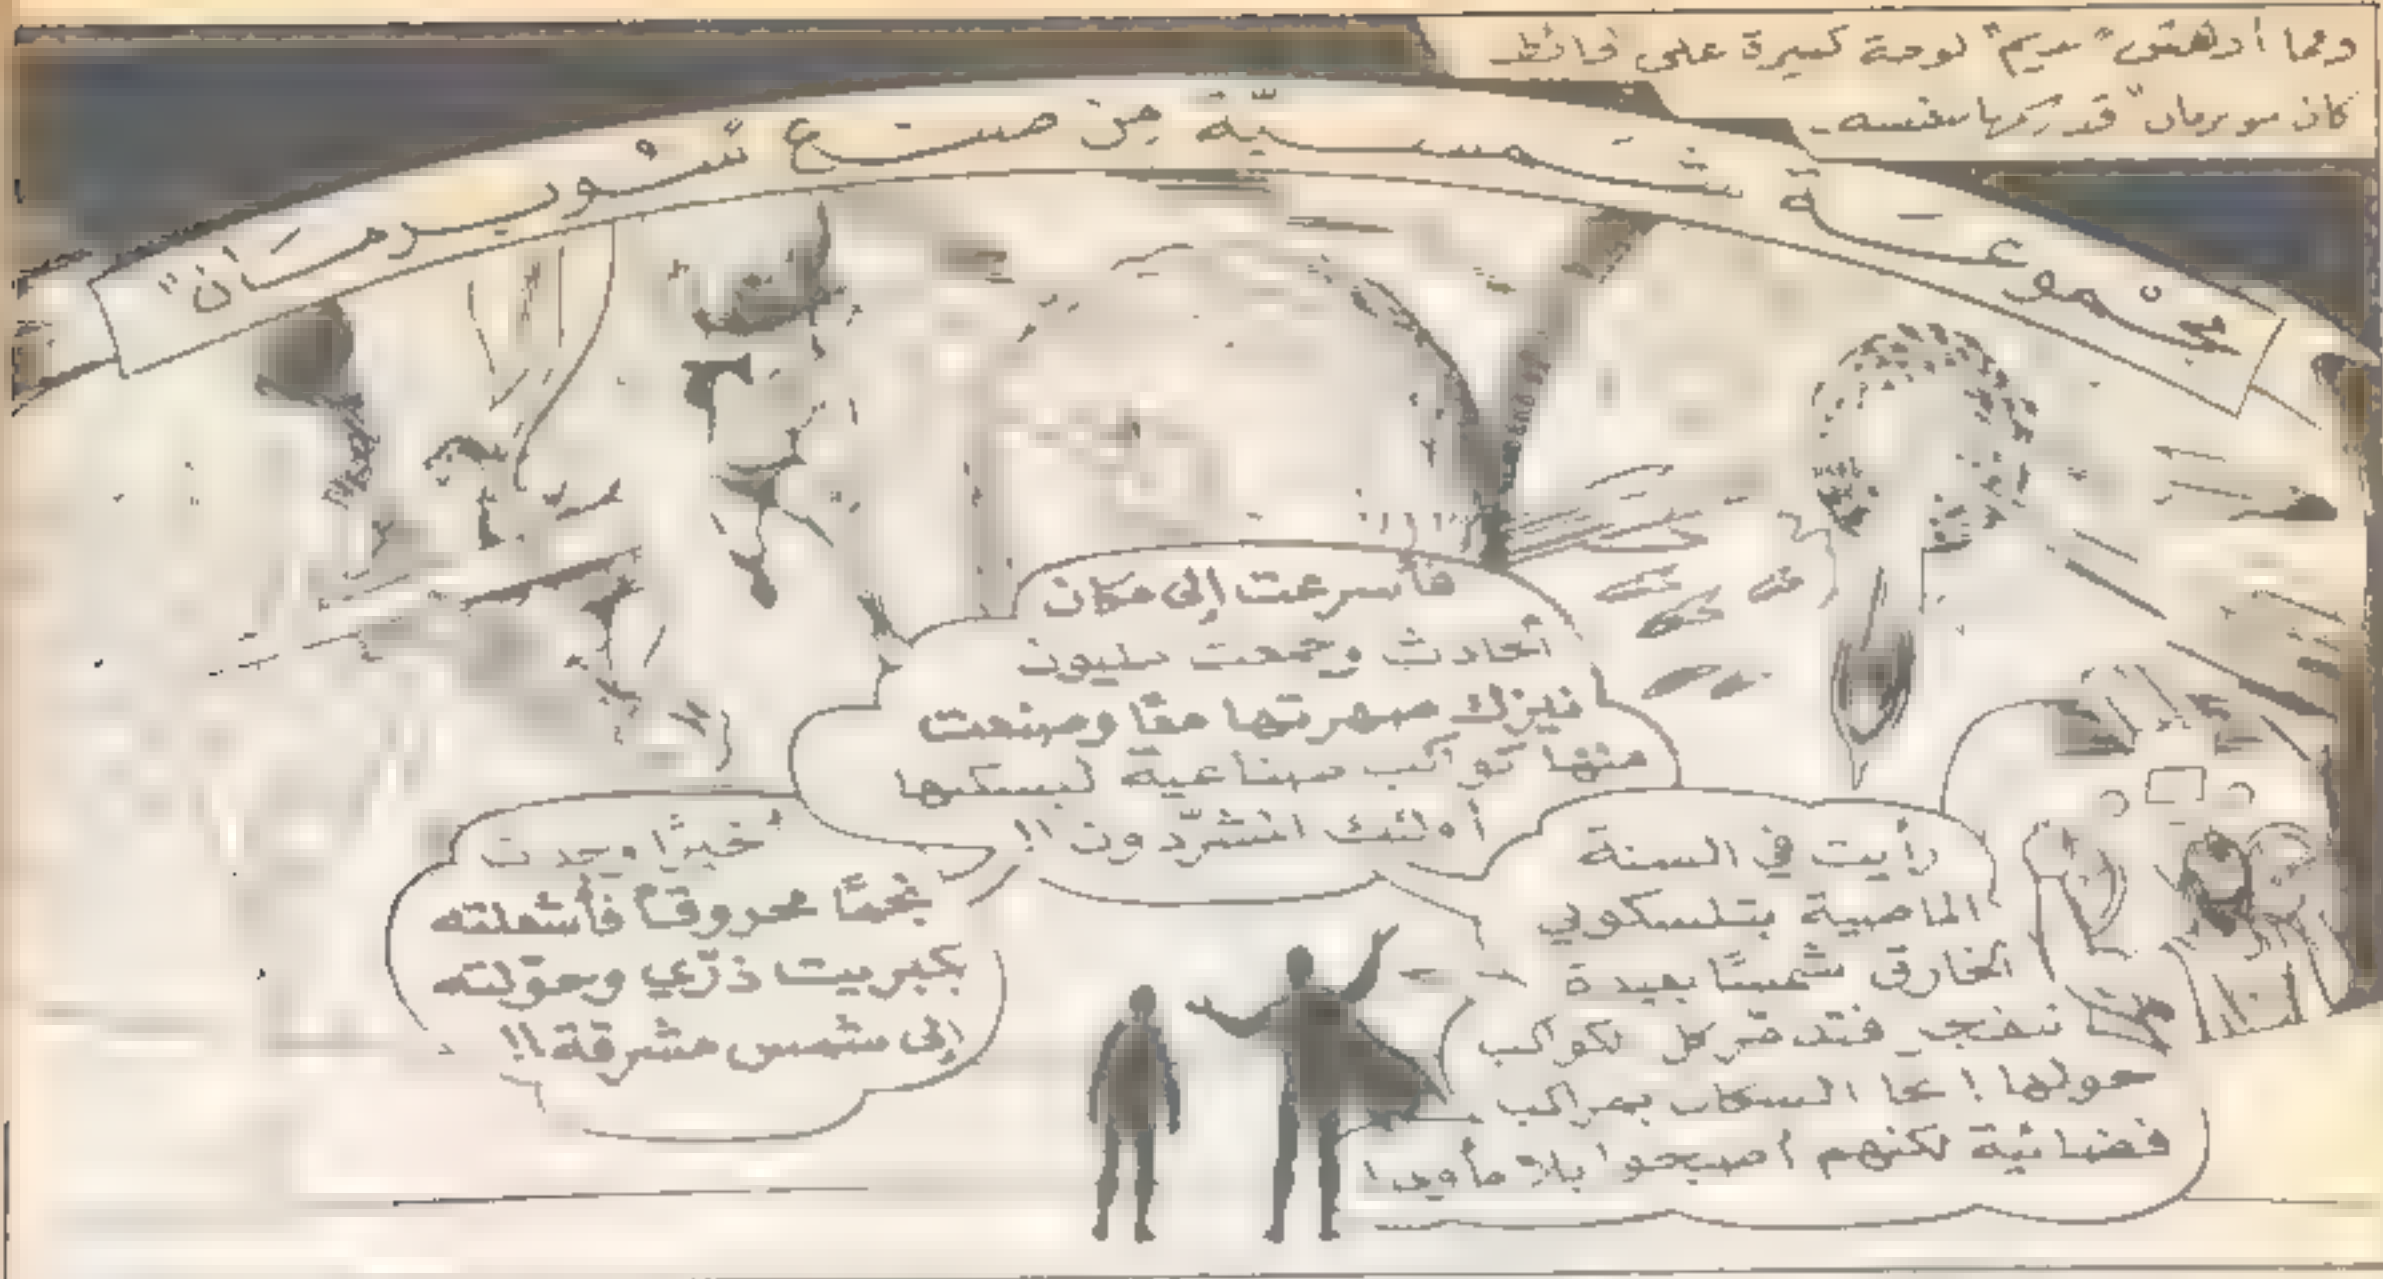 ومما أدهش "نديم" لوحة كبيرة على حائط
كان سوبرمان قد رسمها بنفسه.
مجموعة شمسية من صنع "سوبرمان"
رأيت في السنة
الماضية بتلسكوبي
الخارق شمسًا بعيدة
تنفجر فتدمّر كل الكواكب
حولها! نجا السكان بمراكب
فضائية لكنهم أصبحوا بلا مأوى!
فأسرعت إلى مكان
الحادث وجمعت مليون
نيزك صهرتها معًا وصنعت
منها كواكب صناعية ليسكنها
أولئك المشرّدون!!
أخيرًا وجدت
نجمًا محروقًا فأشعلته
بكبريت ذرّي وحوّلته
إلى شمس مشرقة!!